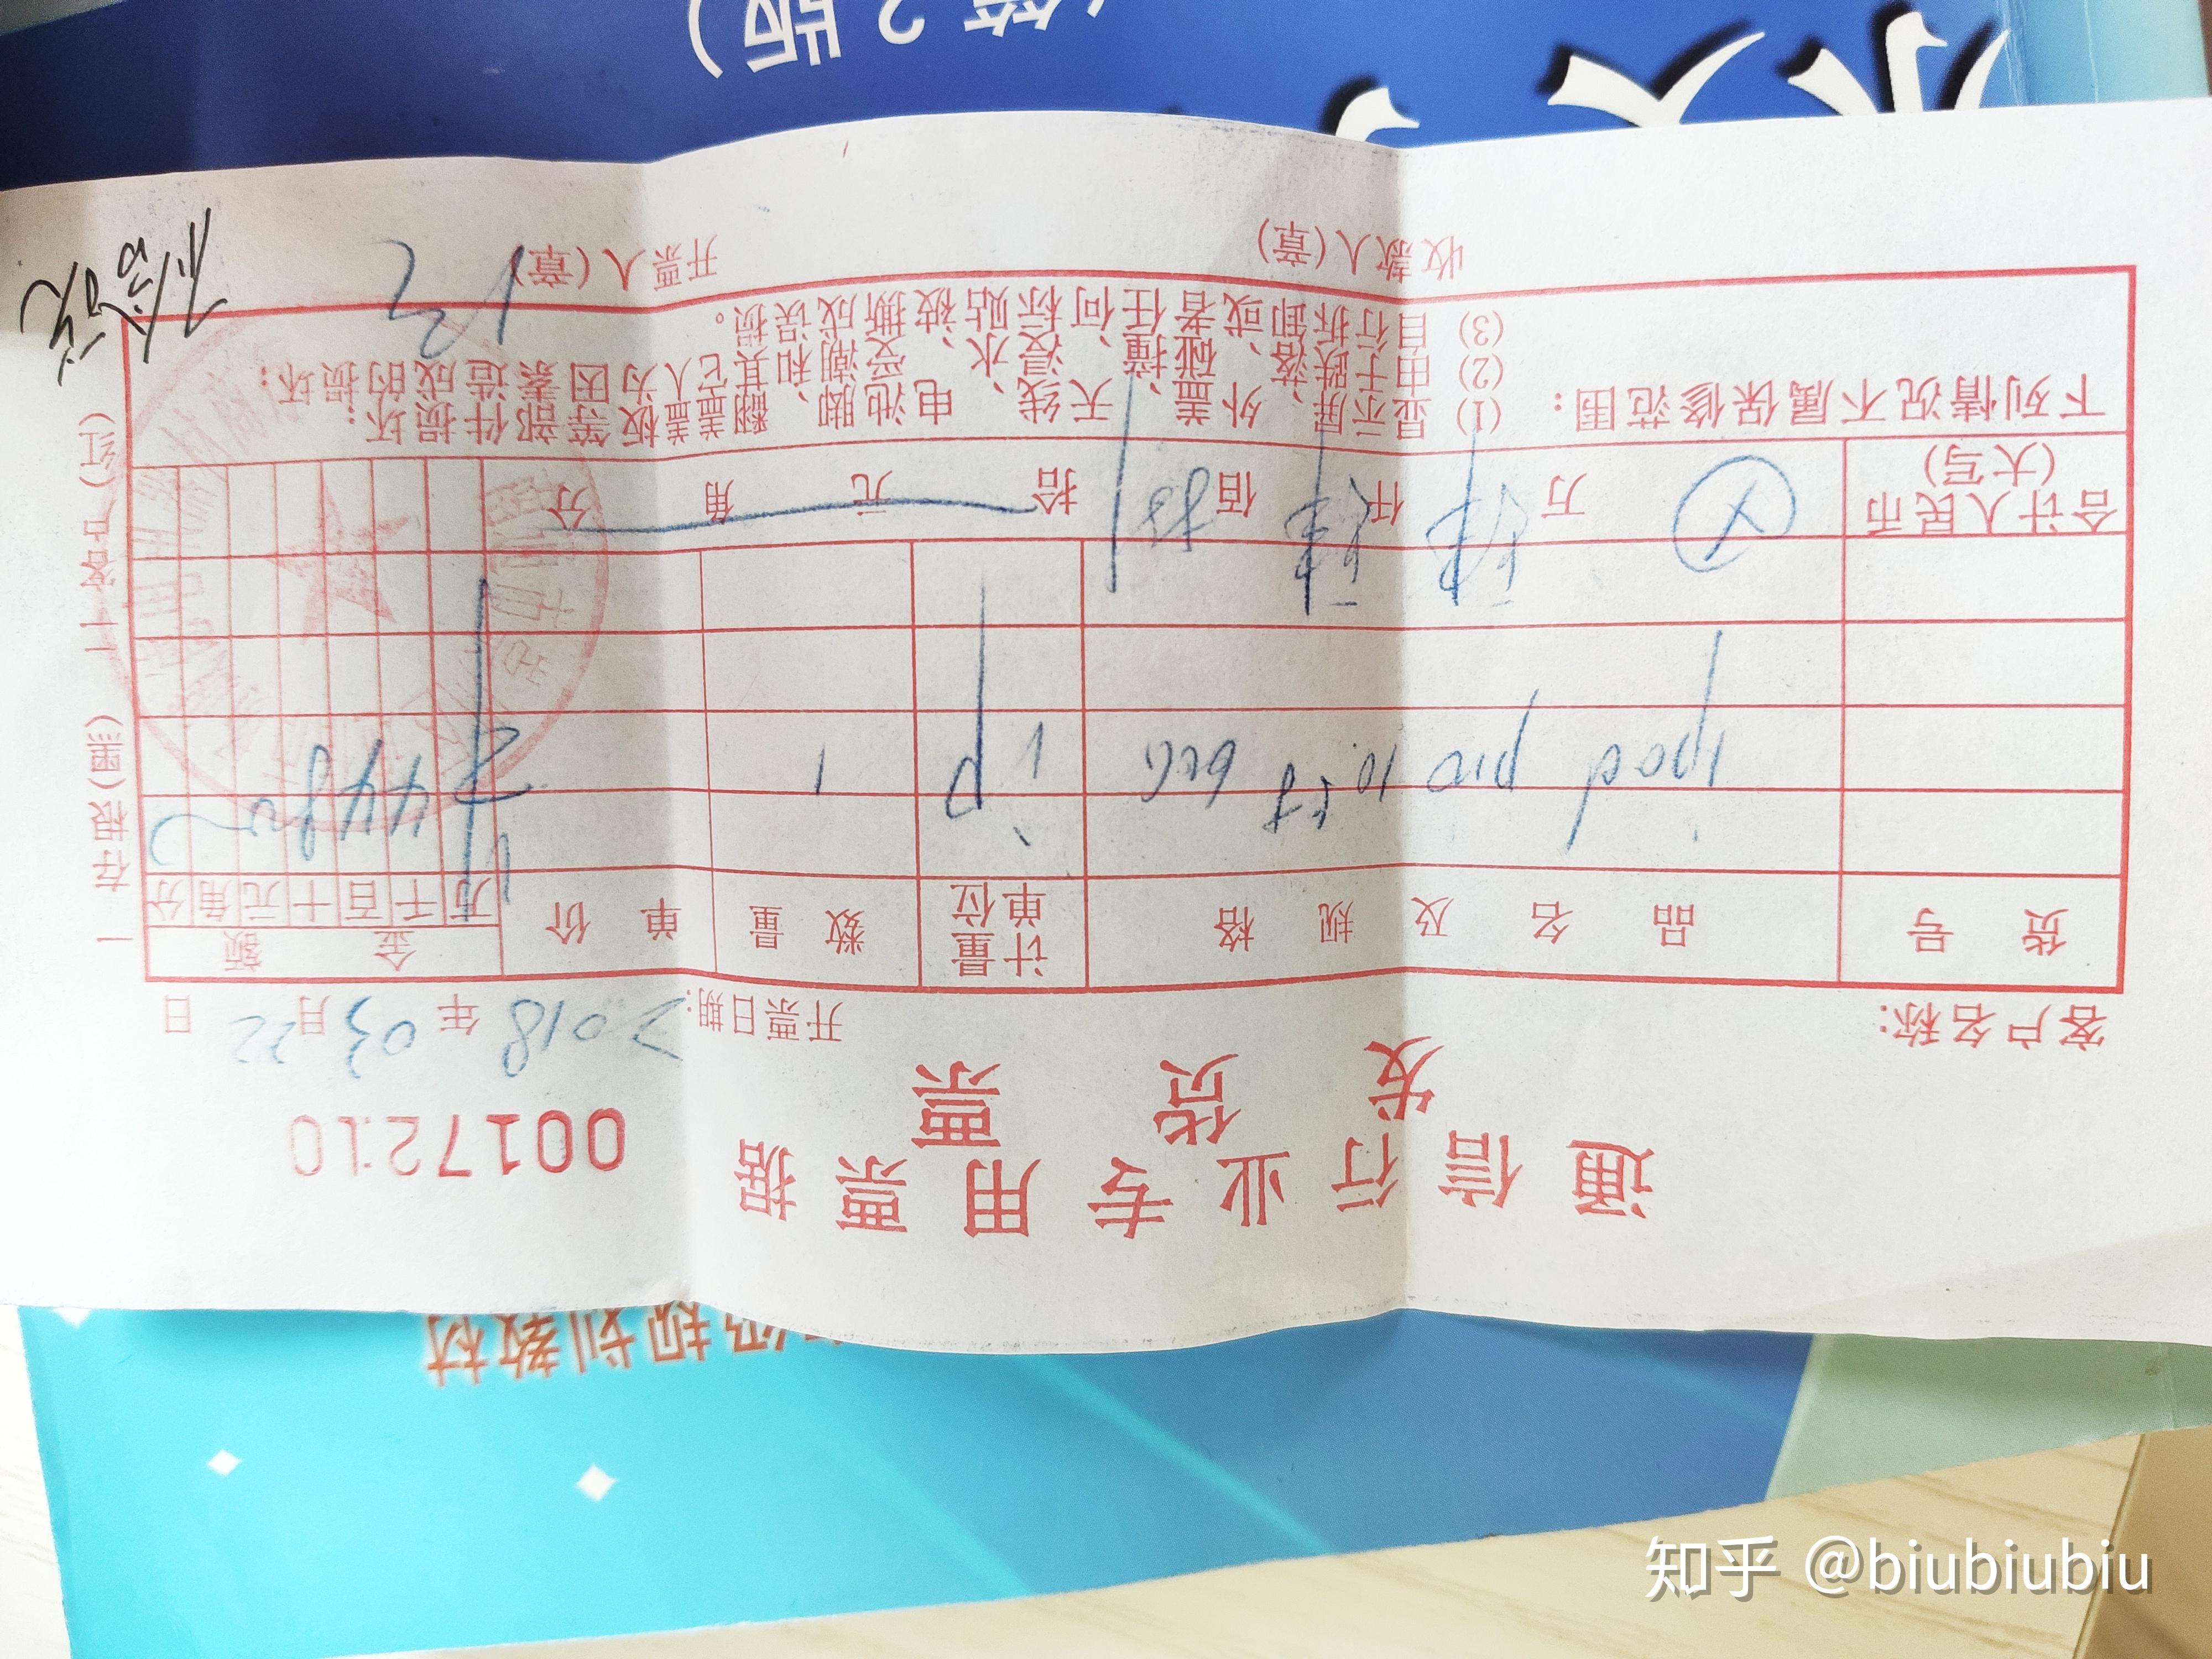 通信行业专用票据
发货票
0017210
客户名称:
开票日期: 2018 年 03 月 22 日
货号 品名及规格 计量单位 数量 单价 金额
万 千 百 十 元 角 分
ipad pro 10.5寸 1 ¥ 4480
合计人民币(大写) ⊗ 万 肆 仟 肆 佰 捌 拾 元 角 分
下列情况不属保修范围:
(1) 显示屏、外盖、天线、电池脚、翻盖盖板等部件损坏;
(2) 由于跌落、碰撞、浸水、受潮和其它人为因素造成的损坏;
(3) 自行拆卸或者任何标贴被撕成误损。
收款人(章)
开票人(章)
一存根(黑) 二客户(红)
水文
(第2版)
规划教材
知乎 @biubiubiu